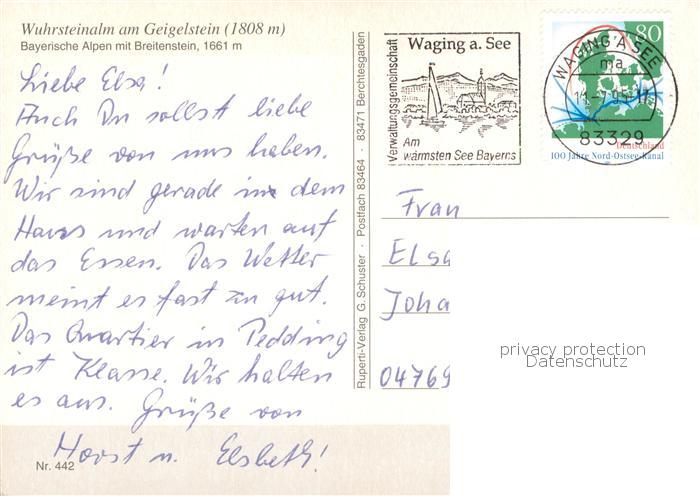 Wuhrsteinalm am Geigelstein (1808 m)
Bayerische Alpen mit Breitenstein, 1661 m
Liebe Elsa!
Auch Du sollst liebe
Grüße von uns haben.
Wir sind gerade in dem
Haus und warten auf
das Essen. Das Wetter
meint es fast zu gut.
Das Quartier in Pedding
ist Klasse. Wir halten
es aus. Grüße von
Horst u. Elsbeth!
Nr. 442
Ruperti-Verlag G. Schuster · Postfach 83464 · 83471 Berchtesgaden
Verwaltungsgemeinschaft
Waging a. See
Am
wärmsten See Bayerns
WAGING A SEE
ma
83329
80
Deutschland
100 Jahre Nord-Ostsee-Kanal
Frau
Elsa
Joha
04769
privacy protection
Datenschutz